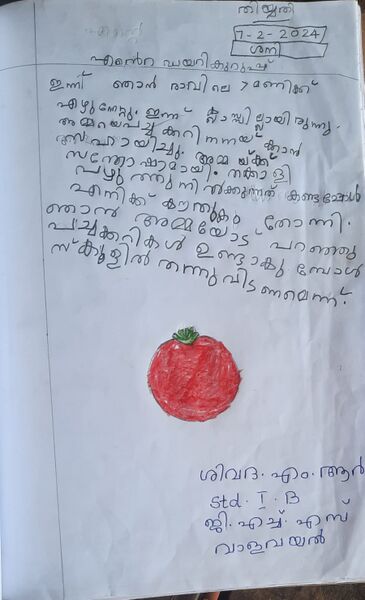 തിയ്യതി
7-2-2024
ശനി
എൻെറ ഡയറികുറുപ്പ്
ഇന്ന് ഞാൻ രാവിലെ 7 മണിക്ക്
എഴുന്നേറ്റു. ഇന്ന് ക്ലാസ്സില്ലായിരുന്നു.
അമ്മയെപച്ചക്കറിനനയ്ക്കാൻ
സഹായിച്ചു. അമ്മയ്ക്ക്
സന്തോഷമായി. തക്കാളി
പഴുത്തുനിൽക്കുന്നത് കണ്ടപ്പോൾ
എനിക്ക് കൗതുകം തോന്നി.
ഞാൻ അമ്മയോട് പറഞ്ഞു
പച്ചക്കറികൾ ഉണ്ടാകുമ്പോൾ
സ്കൂളിൽ തന്നുവിടണമെന്ന്.
ശിവദ. എം. ആർ
std. I. B
ജി. എച്ച്. എസ്
വാളവയൽ